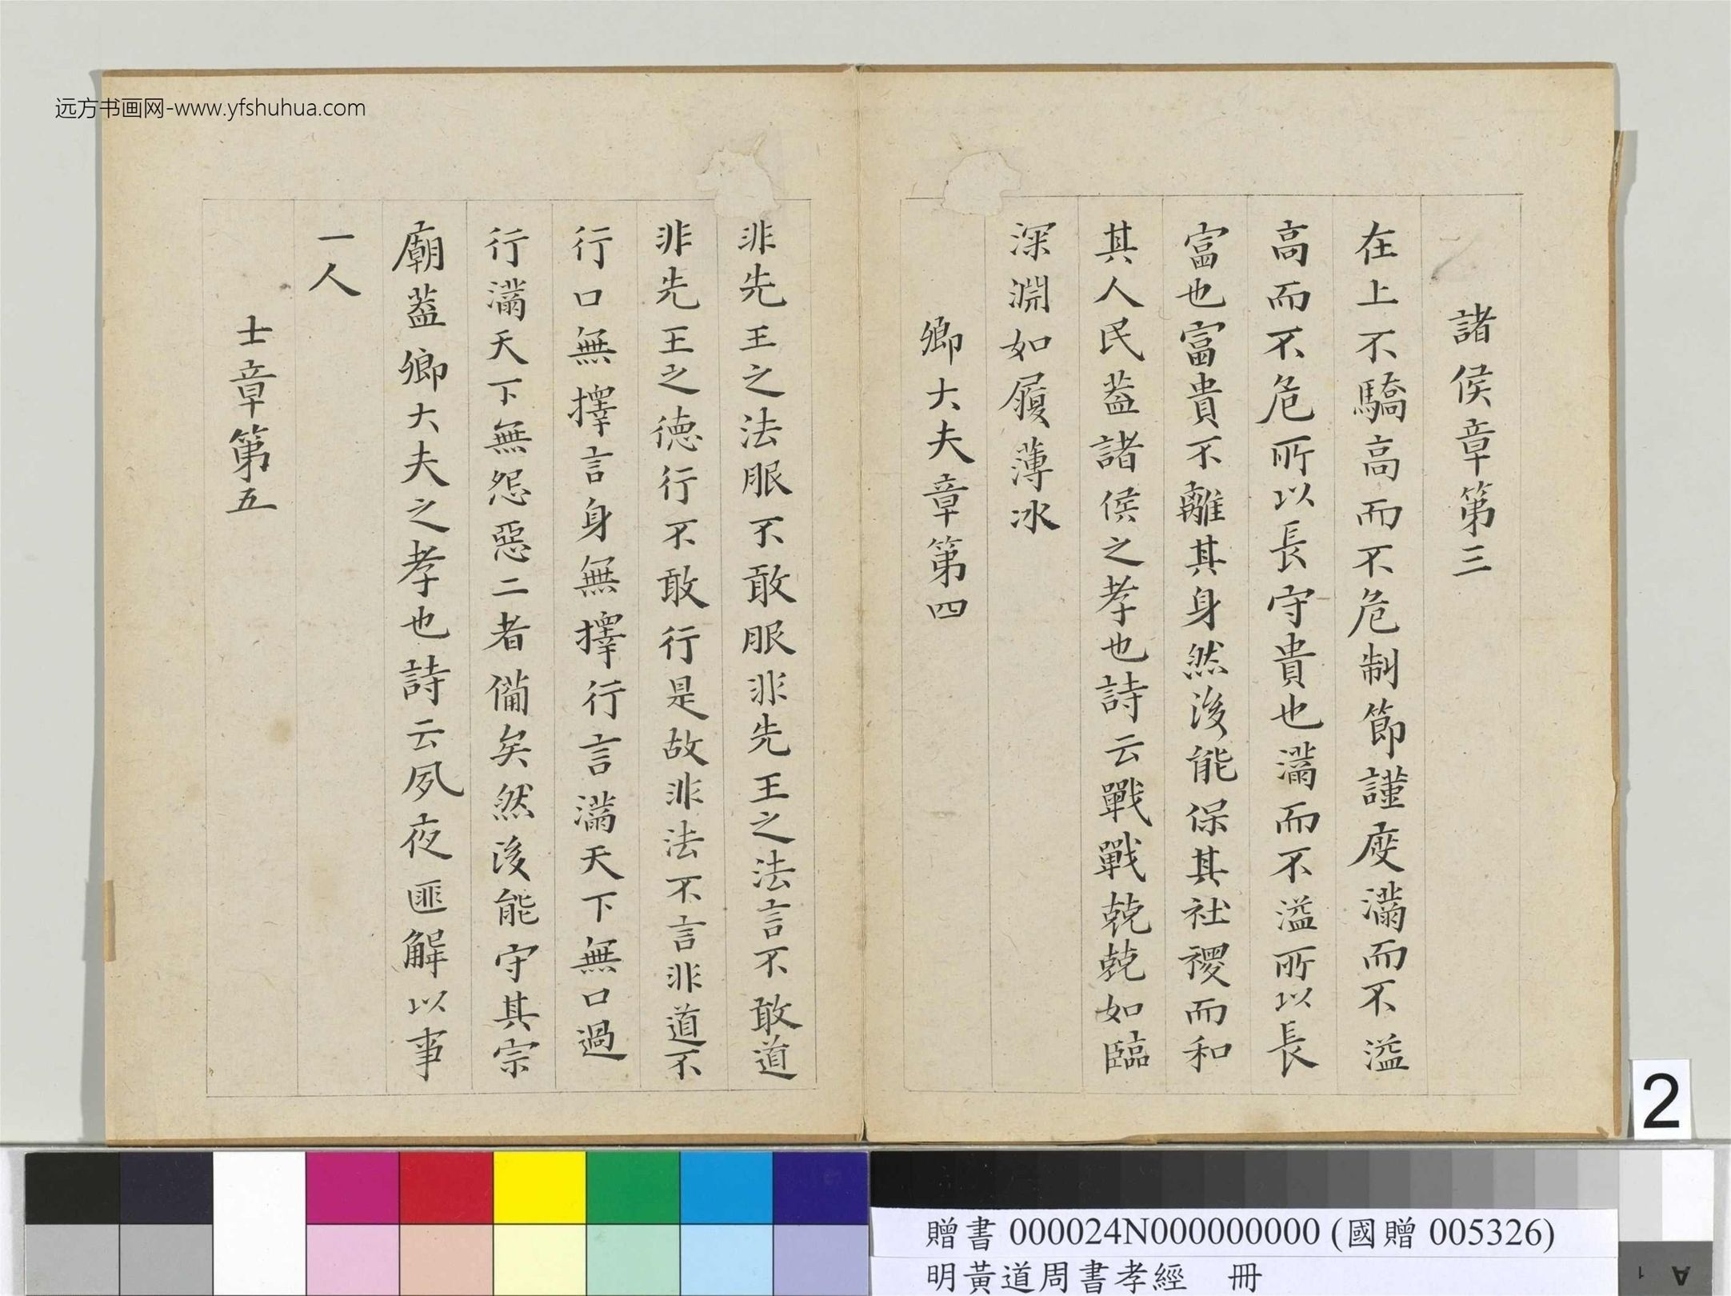 远方书画网-www.yfshuhua.com
諸侯章第三
在上不驕高而不危制節謹度滿而不溢
高而不危所以長守貴也滿而不溢所以長
富也富貴不離其身然後能保其社稷而和
其人民蓋諸侯之孝也詩云戰戰兢兢如臨
深淵如履薄冰
卿大夫章第四
非先王之法服不敢服非先王之法言不敢道
非先王之德行不敢行是故非法不言非道不
行口無擇言身無擇行言滿天下無口過
行滿天下無怨惡二者備矣然後能守其宗
廟蓋卿大夫之孝也詩云夙夜匪解以事
一人
士章第五
2
贈書 000024N000000000 (國贈 005326)
明黃道周書孝經 冊
A 1